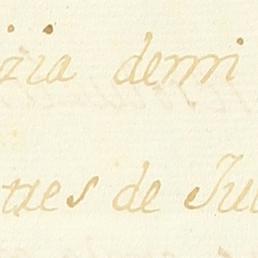 zia demi
tres de Jul